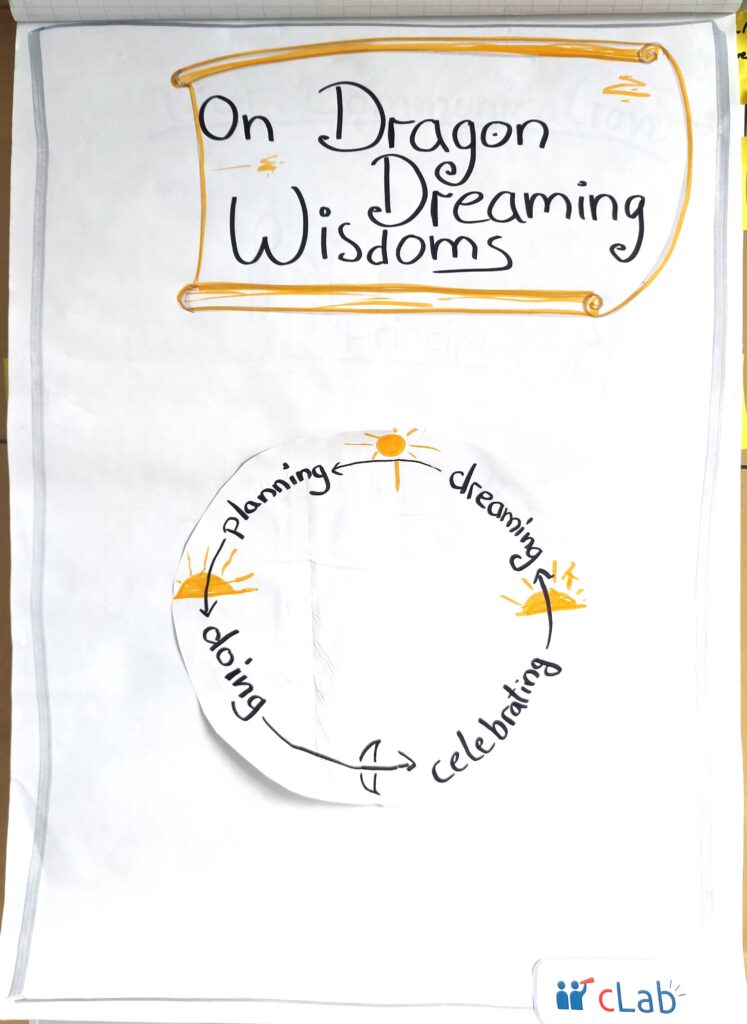 On Dragon
Dreaming
Wisdoms
planning
dreaming
doing
celebrating
cLab